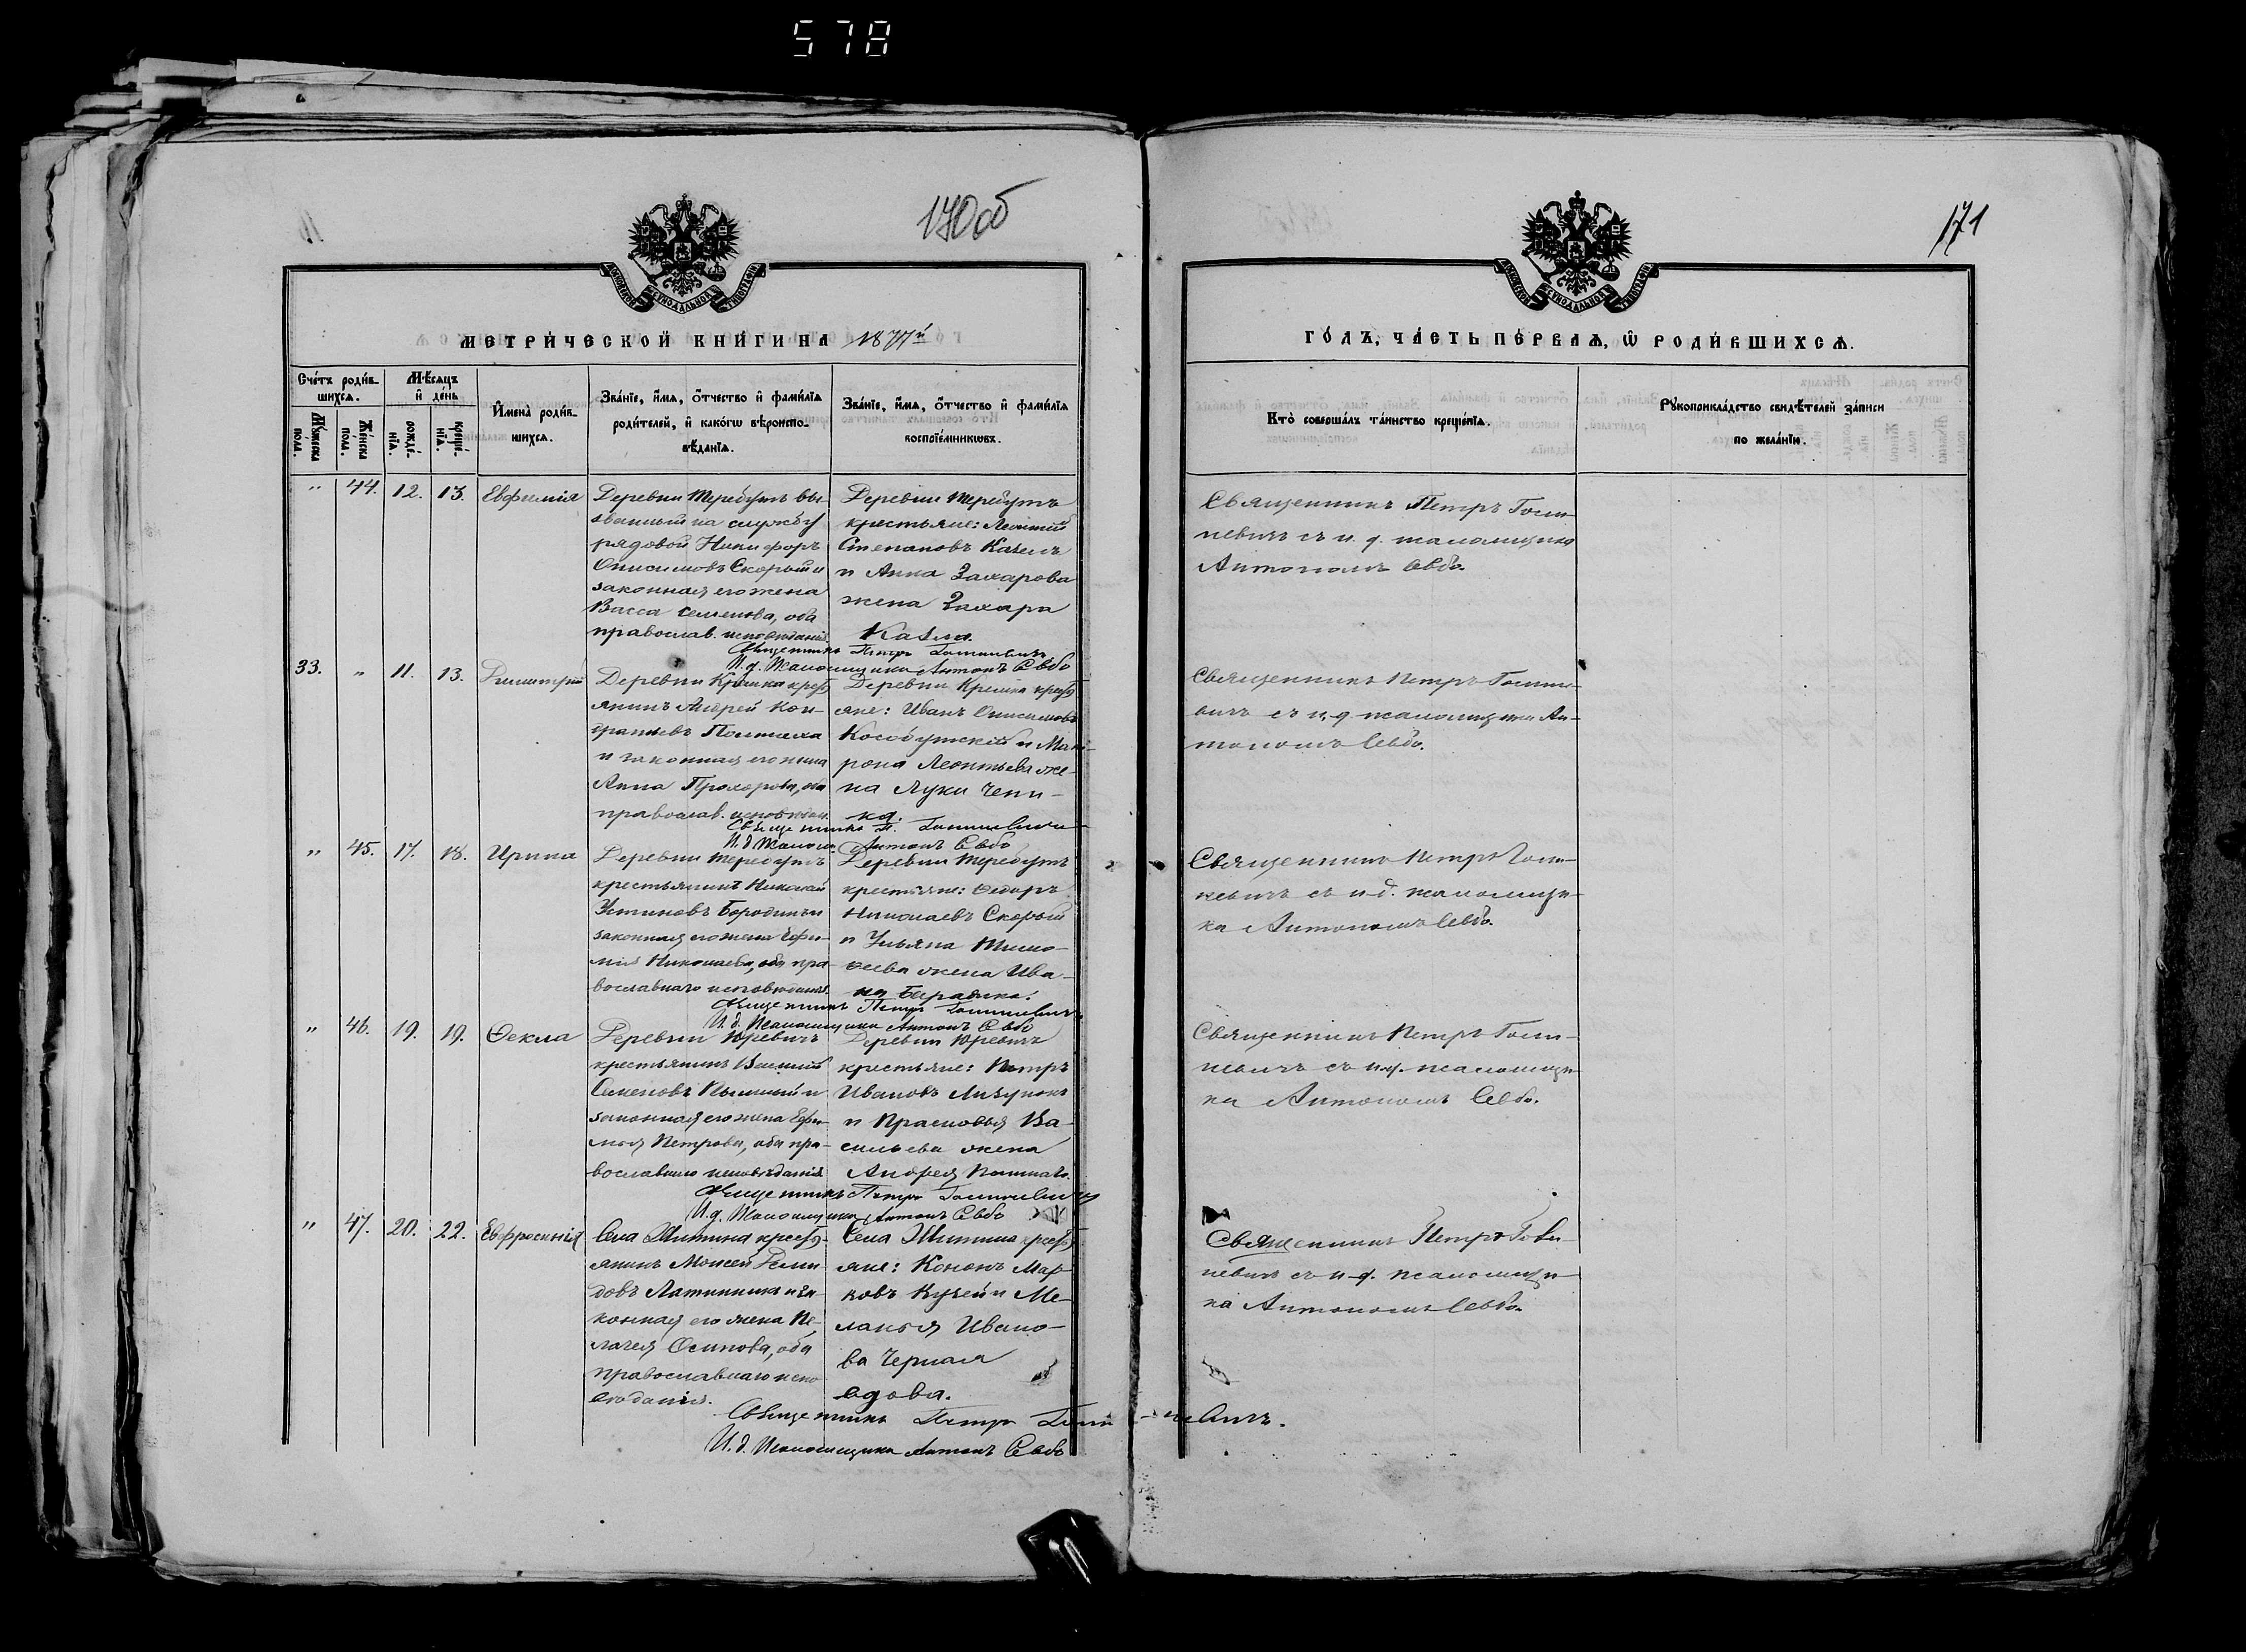 578
170об
171
МОСКОВСКОЙ СУНОДАЛЬНОЙ ТИПОГРАФІИ
МЕТРИ́ЧЕСКОЙ КНИ́ГИ НА 1877й
Сче́тъ роди́в-
шихсѧ.
Мꙋ́жеска по́ла.
Же́нска по́ла.
Мѣ́сѧцъ
и҆ де́нь
рожде́-
нїѧ.
креще́-
нїѧ.
И҆мена̀ роди́в-
шихсѧ.
Зва́нїе, и҆́мѧ, ѻ҆́тчество и҆ фами́лїѧ
роди́телей, и҆ како́гѡ вѣроиспо-
вѣ́данїѧ.
Зва́нїе, и҆́мѧ, ѻ҆́тчество и҆ фами́лїѧ
воспрїе́мникѡвъ.
" 44. 12. 13. Евфимія
Деревни Теребутъ вы-
званный на службу
рядовой Никифоръ
Онисимовъ Скорый и
законная его жена
Васса Семенова, оба
православ. исповѣданія.
Деревни Теребутъ
крестьяне: Леонтій
Степановъ
и Анна Захарова
жена Захара
Священникъ Петръ
И. д. Псаломщика Антонъ Севбо
33. " 11. 13. Димитрій
Деревни кресть-
янинъ Андрей Кон-
дратьевъ
и законная его жена
Анна Прохорова, оба
православ. исповѣдан.
Деревни кресть-
яне: Иванъ Онисимовъ
и Мат-
рона Леонтьева же-
на Луки Чепи-
ка.
Священникъ П.
И. д. Псалом. Антонъ Севбо
" 45. 17. 18. Ирина
Деревни Теребутъ
крестьянинъ Николай
Устиновъ и
законная его жена Ефи-
мія Николаева, оба пра-
вославнаго исповѣданія.
Деревни Теребутъ
крестьяне: Ѳеодоръ
Николаевъ Скорый
и Ульяна Тимо-
ѳеева жена Ива-
на
Священникъ Петръ
И. д. Псаломщика Антонъ Севбо
" 46. 19. 19. Ѳекла
Деревни Юревичъ
крестьянинъ Василій
Семеновъ и
законная его жена Ефи-
мья Петрова, оба пра-
вославнаго исповѣданія
Деревни Юревичъ
крестьяне: Петръ
Ивановъ
и Прасковья Ва-
сильева жена
Андрея
Священникъ Петръ
И. д. Псаломщика Антонъ Севбо
" 47. 20. 22. Евфросинія
Села Житина кресть-
янинъ Моисей Деми-
довъ и за-
конная его жена Пе-
лагея Осипова, оба
православнаго испо-
вѣданія.
Села Житина кресть-
яне: Кононъ Мар-
ковъ и Ме-
ланья Ивано-
ва Черная
вдова.
Священникъ Петръ
И. д. Псаломщика Антонъ Севбо
ГО́ДЪ, ЧА́СТЬ ПЕ́РВАѦ, Ѡ҆ РОДИ́ВШИХСѦ.
Кто̀ соверша́лъ та́инство креще́нїѧ.
Рꙋкоприкла́дство свидѣ́телей за́писи
по жела́нїи.
Священникъ Петръ
съ и. д. псаломщика
Антономъ Севбо.
Священникъ Петръ
съ и. д. псаломщика Ан-
тономъ Севбо.
Священникъ Петръ
съ и. д. псаломщи-
ка Антономъ Севбо.
Священникъ Петръ
съ и. д. псаломщи-
ка Антономъ Севбо.
Священникъ Петръ
съ и. д. псаломщи-
ка Антономъ Севбо.